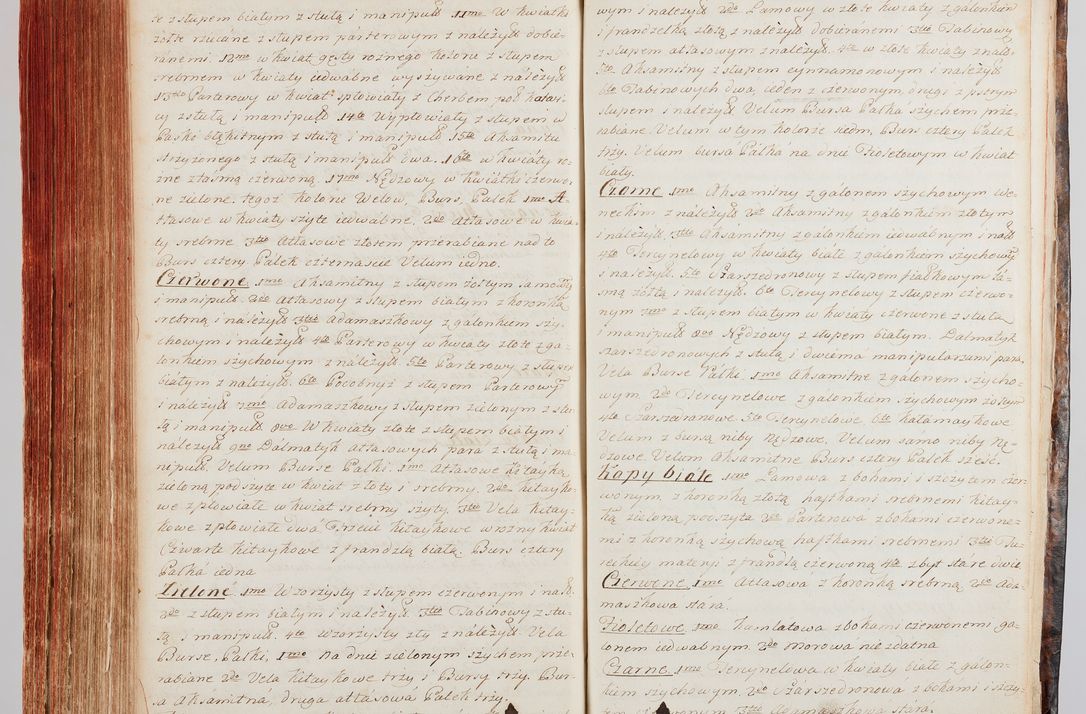 ze stupem białym z stułą i manipuł. 11mo W kwiatki
żółte rzucane z stupem parterowym z należyt. dobie-
ranemi. 12mo w kwiat gęsty rożnego koloru z stupem
srebrnem w kwiaty iedwabne wyszywane z należyt.
13tio Parterowy w kwiat spłowiały z Cherbem pół
cy z stułą i manipuł. 14to Wypłowiały z stupem w
Paski błękitnym z stułą i manipuł. 15to Aksamitu
strzyżonego z stułą i manipuł. dwa. 16to w kwiaty ro-
żne z taśmą czerwoną 17mo Nędzowy w kwiatki czerwo-
ne zielone. tegoż koloru Welow, Burs, Palek 1mo A-
tłasowe w kwiaty szyte iedwabne. 2do Atłasowe w kwia-
ty srebrne 3tio Atłasowe złotem przerabiane nadto
Burs cztery Palek czternascie Velum iedno.
Czerwone 1mo Aksamitny z stupem żołtym
i manipuł. 2do Atłasowy z stupem białym z koronką
srebrną i należyt. 3tio Adamaszkowy z galonkiem szy-
chowym i należyt. 4to Parterowy w kwiaty złote z ga-
lonkiem szychowym z należyt. 5to Parterowy z stupem
białym z należyt. 6to z stupem Parterowym
i należyt. 7mo Adamaszkowy z stupem zielonym z stu-
łą i manipuł. 8vo W kwiaty złote z stupem białym i
należyt. 9no Dalmatyk atłasowych para z stułą i ma-
nipuł. Velum Burse Palki. 1mo Atłasowe kitayką
zieloną podszyte w kwiat złoty i srebrny. 2do kitayko-
we zpłowiałe w kwiat srebrny szyty. 3tio Vela kitay-
kowe zpłowiałe dwa Trzecie kitaykowe w rożny kwiat
Czwarte kitaykowe z frandzlą białą. Burs cztery
Palka iedna
Zielone 1mo Wzorzysty z stupem czerwonym i nal.
2do z stupem białym i należyt. 3tio Tabinowy z stu-
łą i manipuł. 4to wzorzysty zły z należyt. Vela
Burse, Palki, 1mo Na dnie zielonym szychem prze-
rabiane 2do Vela kitaykowe trzy i Bursy trzy. Bur-
sa Aksamitna, druga atłasowa Palek trzy.
wym i należyt. 2do Lamowy w złote kwiaty z galonkiem
i frandzelką złotą z należyt. dobieranemi 3tio Tabinowy
z stupem atłasowym z należyt. 4to w złote kwiaty z nal.
5to Aksamitny z stupem cynnamonowym i należyt.
6to Tabinowych dwa, ieden z czerwonym, drugi z pstrym
stupem i należyt. Velum Bursa Palka szychem prze-
rabiane. Velum w tym kolorze siedm, Burs cztery Palek
trzy. Velum bursa Palka na dnie Fioletowym w kwiat
biały.
Czarne 1mo Aksamitny z galonem szychowym we-
neckim z należyt. 2do Aksamitny z galonkiem złotym
i należyt. 3tio Aksamitny z galonkiem iedwabnym i nal.
4to Tercynelowy w kwiaty białe z galonkiem szychowym
i należyt. 5to z stupem fiałkowym ta-
smą żółtą i należyt. 6to Tercynelowy z stupem czerwo-
nym 7mo z stupem białym w kwiaty czerwone z stułą
i manipuł. 8vo Nędzowy z stupem białym. Dalmatyk
z stułą i dwiema manipularzami para.
Vela Burse Palki. 1mo Aksamitne z galonem szycho-
wym. 2do Tercynelowe z galonkiem szychowym żołtym
4to 5to Tercynelowe, 6to
Velum z bursą niby nędzowe. Velum samo niby nę-
dzowe Velum Aksamitne Burs cztery Palek sześć.
Kapy białe 1mo Lamowa z bokami i szczytem czer-
wonym, z koronką złotą haftkami srebrnemi kitay-
ką zieloną podszyta 2do Parterowa z bokami czerwone-
mi z koronką szychową haftkami srebrnemi 3tio Tu-
reckiey materyi z frandlą czerwoną 4to zbyt stare dwie
Czerwone 1mo Atłasowa z koronką srebrną, 2do Ada-
maszkowa stara.
Fioletowe 1mo Kamlatowa z bokami czerwonemi ga-
lonem iedwabnym. 2do morowa niezdatna
Czarne 1mo Tercynelowa w kwiaty białe z galon-
kiem szychowym, 2do z bokami i szczy-
tem 3tio Adamaszkowa stara.